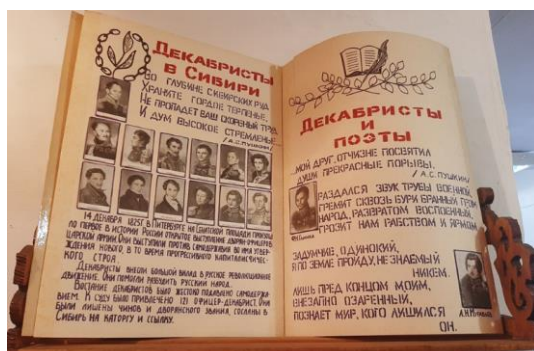 Декабристы
в Сибири
Во глубине сибирских руд
Храните гордое терпенье,
Не пропадет ваш скорбный труд
И дум высокое стремленье...
/А.С. Пушкин/
14 декабря 1825г. в Петербурге на Сенатской площади произошло
по первое в истории России открытое выступление дворян-офицеров
царской армии. Они выступили против самодержавия во имя утвер-
ждения нового в то время прогрессивного капиталистичес-
кого строя.
Декабристы внесли большой вклад в русское революционное
движение. Они помогли разбудить русский народ.
Востание декабристов было жестоко подавлено самодержа-
вием. К суду было привлечено 121 офицер-декабрист. Они
были лишены чинов и дворянского звания, сосланы в
Сибирь на каторгу и ссылку.
Декабристы
и
поэты
...Мой друг, отчизне посвятим
души прекрасные порывы.
/А.С. Пушкин/
Раздался звук трубы военной,
Гремит сквозь бури бранный гром
Народ, развратом воспоенный,
Грозит нам рабством и ярмом
Задумчив, одинокий,
Я по земле пройду, не знаемый
никем.
Лишь пред концом моим,
Внезапно озаренный,
Познает мир, кого лишился
он.